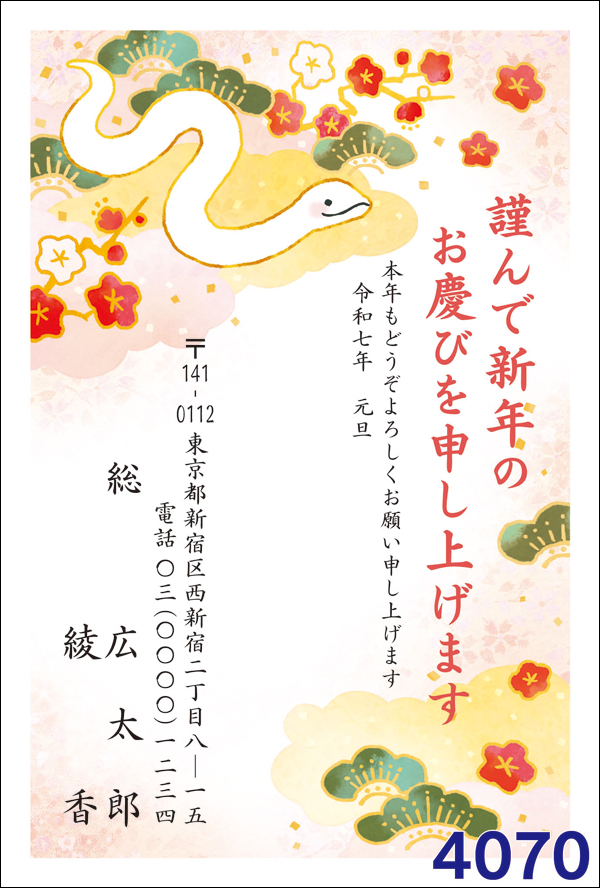 謹んで新年の
お慶びを申し上げます
本年もどうぞよろしくお願い申し上げます
令和七年　元旦
〒141-0112 東京都新宿区西新宿二丁目八―一五
電話 〇三(〇〇〇〇)一二三四
総　広太郎
綾香
4070